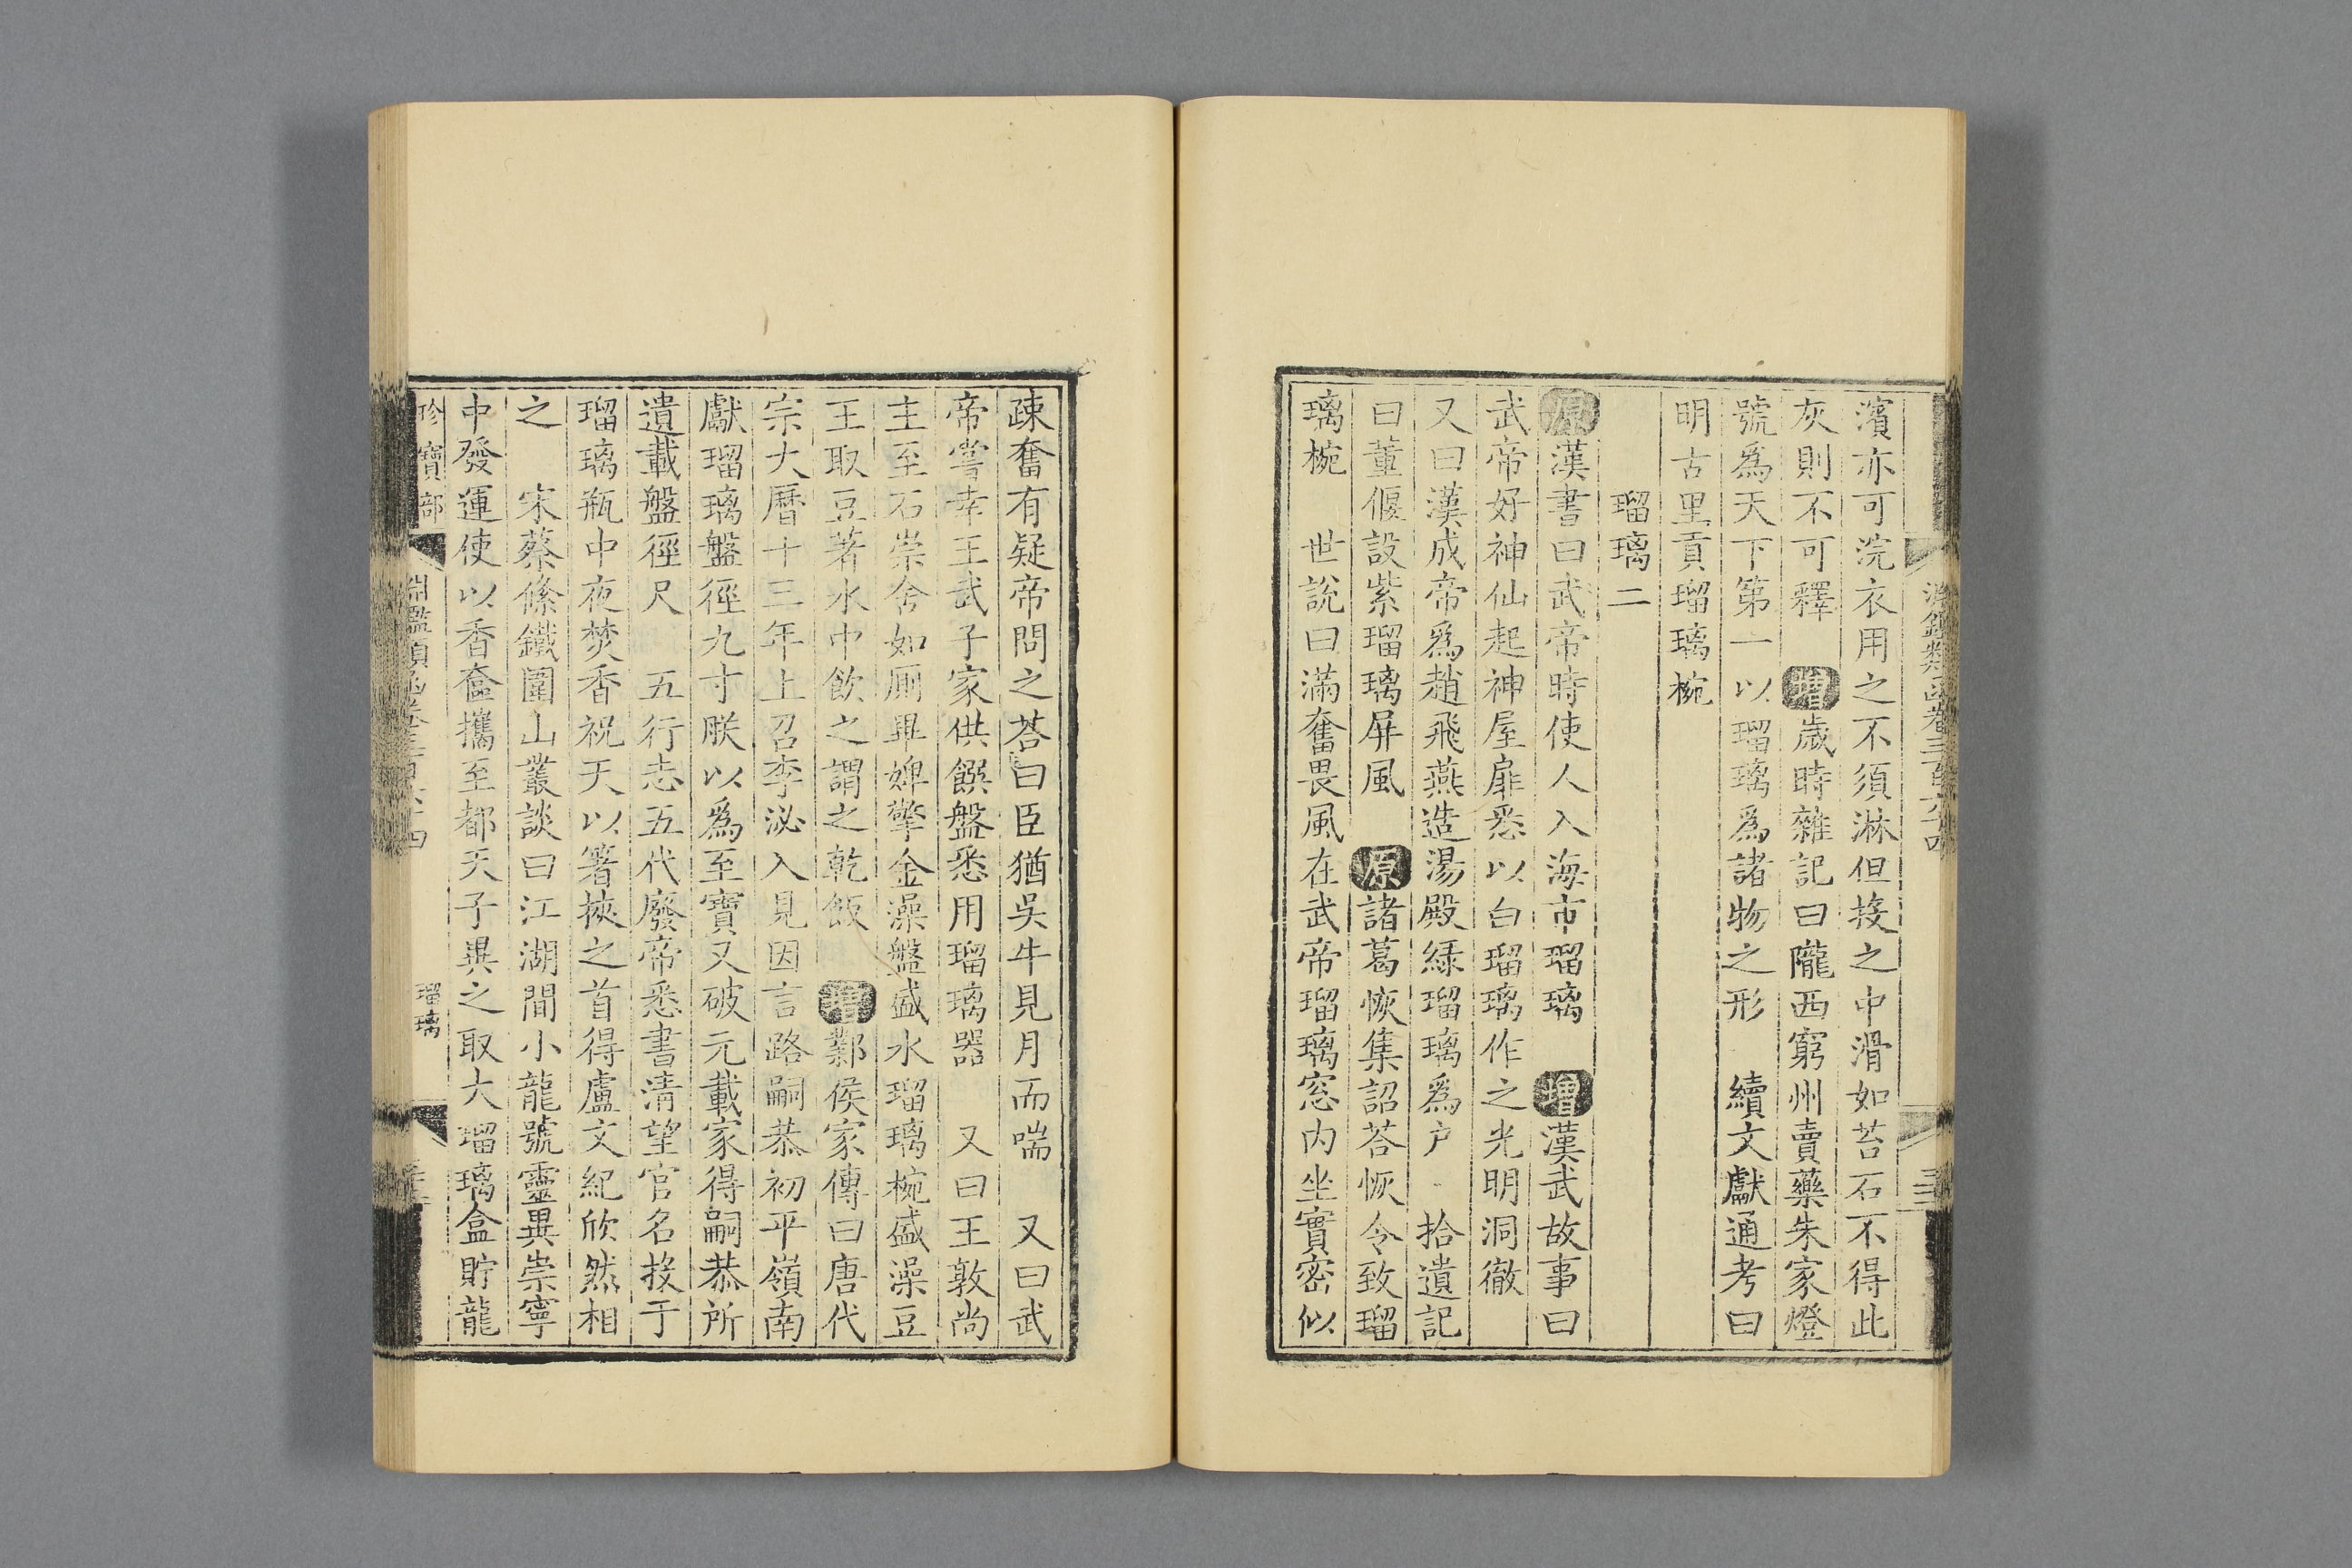 淵鑑類函卷三百六十四
濱亦可浣衣用之不須淋但投之中滑如苔石不得此
灰則不可釋 增歲時雜記曰隴西窮州賣藥朱家燈
號爲天下第一以瑠璃爲諸物之形 續文獻通考曰
明古里貢瑠璃椀
瑠璃二
原漢書曰武帝時使人入海市瑠璃 增漢武故事曰
武帝好神仙起神屋扉悉以白瑠璃作之光明洞徹
又曰漢成帝爲趙飛燕造湯殿綠瑠璃爲戶 拾遺記
曰董偃設紫瑠璃屏風 原諸葛恢集詔荅恢令致瑠
璃椀 世說曰滿奮畏風在武帝瑠璃窓內坐實密似
疎奮有疑帝問之荅曰臣猶吳牛見月而喘 又曰武
帝嘗幸王武子家供饌盤悉用瑠璃器 又曰王敦尚
主至石崇舍如厠畢婢擎金澡盤盛水瑠璃椀盛澡豆
王取豆著水中飲之謂之乾飯 增鄴侯家傳曰唐代
宗大曆十三年上召李泌入見因言路嗣恭初平嶺南
獻瑠璃盤徑九寸朕以爲至寶又破元載家得嗣恭所
遺載盤徑尺 五行志五代廢帝悉書清望官名投于
瑠璃瓶中夜焚香祝天以箸挾之首得盧文紀欣然相
之 宋蔡絛鐵圍山叢談曰江湖間小龍號靈異崇寧
中發運使以香奩攜至都天子異之取大瑠璃盒貯龍
珍寶部 淵鑑類函卷三百六十四 瑠璃